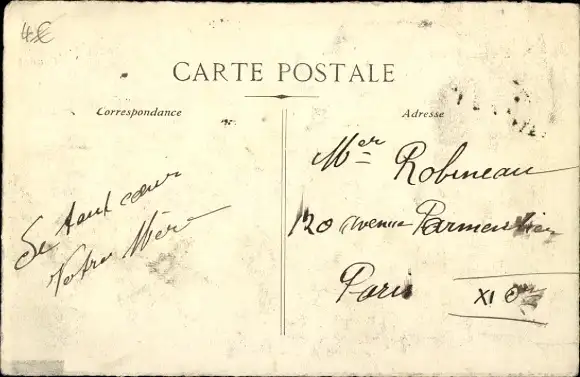 4€
CARTE POSTALE
Correspondance
Adresse
De tout cœur
Votre Mère
Mer Robineau
120 avenue Parmentier
Paris XI e